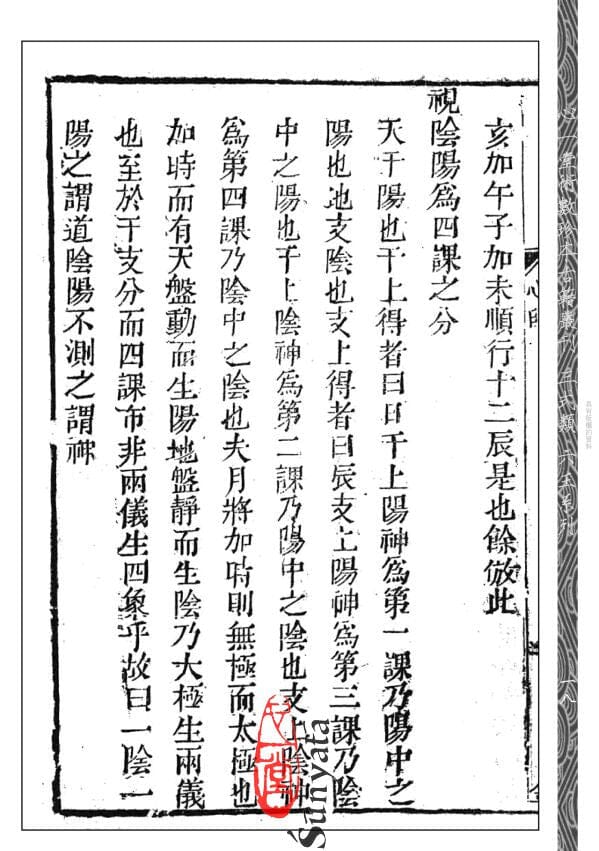 亥加午子加未順行十二辰是也餘倣此
視陰陽爲四課之分
天干陽也干上得者曰日干上陽神爲第一課乃陽中之
陽也地支陰也支上得者曰辰支上陽神爲第三課乃陰
中之陽也干上陰神爲第二課乃陽中之陰也支上陰神
爲第四課乃陰中之陰也夫月將加時則無極而太極也
加時而有天盤動而生陽地盤靜而生陰乃大極生兩儀
也至於干支分而四課布非兩儀生四象乎故曰一陰一
陽之謂道陰陽不測之謂神
心一堂術數珍本古籍叢刊 三式類 六壬系列
一八
心一堂
Śūnyata